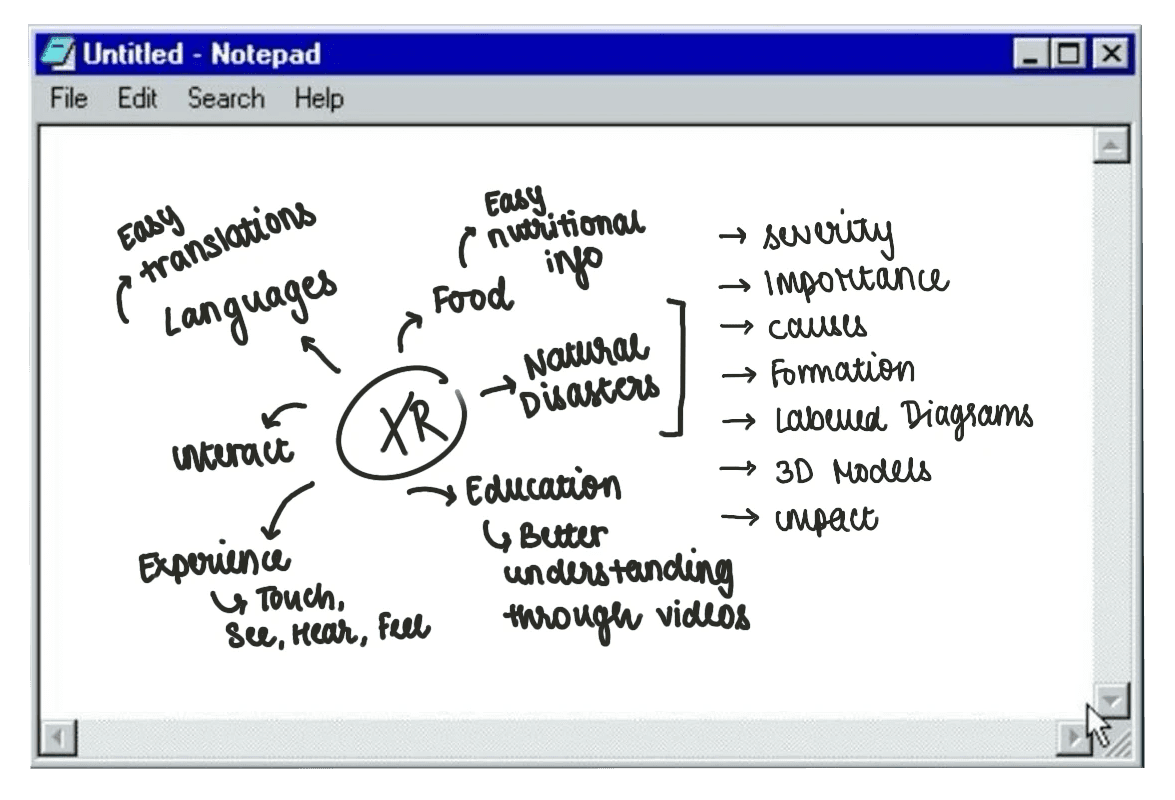 Untitled - Notepad
File Edit Search Help
Easy
translations
Languages
Easy
nutritional
info
Food
Natural
Disasters
→ severity
→ Importance
→ causes
→ Formation
→ Labelled Diagrams
→ 3D Models
→ impact
XR
interact
Education
Better
understanding
through videos
Experience
Touch,
See, Hear, Feel